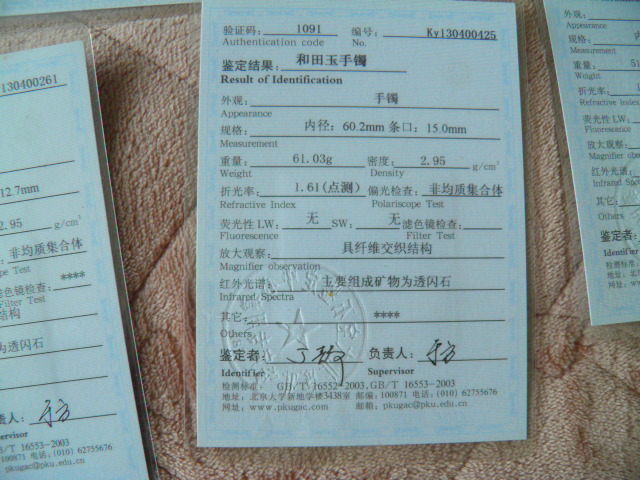 验证码: 1091 编号: Ky130400425
Authentication code No.
鉴定结果: 和田玉手镯
Result of Identification
外观: 手镯
Appearance
规格: 内径: 60.2mm 条口: 15.0mm
Measurement
重量: 61.03g 密度: 2.95 g/cm³
Weight Density
折光率: 1.61(点测) 偏光检查: 非均质集合体
Refractive Index Polariscope Test
荧光性 LW: 无 SW: 无 滤色镜检查:
Fluorescence Filter Test
放大观察: 具纤维交织结构
Magnifier observation
红外光谱: 主要组成矿物为透闪石
Infrared Spectra
其它: ****
Others
鉴定者: 负责人:
Identifier Supervisor
检测标准: GB/T 16552-2003, GB/T 16553-2003
地址: 北京大学新地学楼3438室 邮编: 100871 电话: (010) 62755676
网址: www.pkugac.com 邮箱: pkugac@pku.edu.cn
y130400261
12.7mm
2.95 g/cm³
非均质集合体
scope Test
滤色镜检查: ****
Filter Test
结构
为透闪石
责人:
pervisor
B/T 16553-2003
00871 电话: (010) 62755676
pkugac@pku.edu.cn
外观:
Appearance
规格: 内
Measurement
重量: 51
Weight
折光率: 1
Refractive Index
荧光性 LW:
Fluorescence
放大观察:
Magnifier obser
红外光谱:
Infrared Spect
其它:
Others
鉴定者:
Identifier
检测标准:
地址: 北
网址: ww